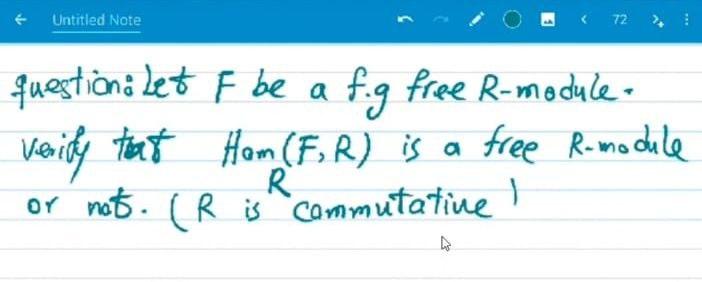 Untitled Note
72
question: Let F be a f.g free R-module.
Verify that Hom(F,R) is a free R-module
R
or not. (R is commutative)